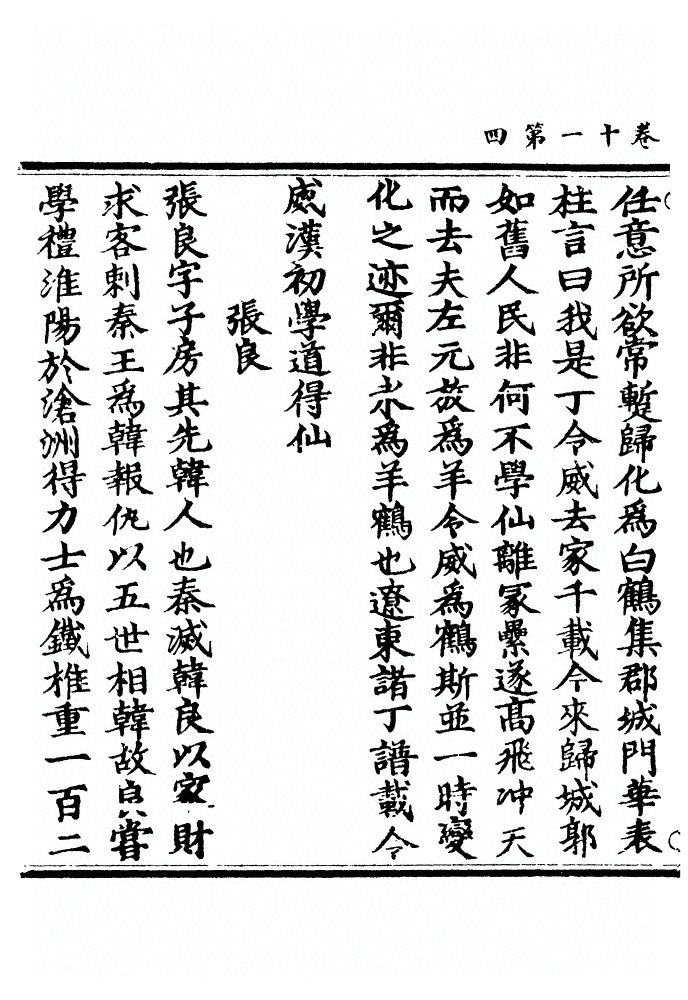 卷十一第四
任意所欲常蹔歸化爲白鶴集郡城門華表
柱言曰我是丁令威去家千載今來歸城郭
如舊人民非何不學仙離冢纍遂髙飛冲天
而去夫左元放爲羊令威爲鶴斯並一時變
化之迹爾非永爲羊鶴也遼東諸丁譜載令
威漢初學道得仙
張良
張良字子房其先韓人也秦滅韓良以家財
求客刺秦王爲韓報仇以五世相韓故良嘗
學禮淮陽於滄洲得力士爲鐵椎重一百二